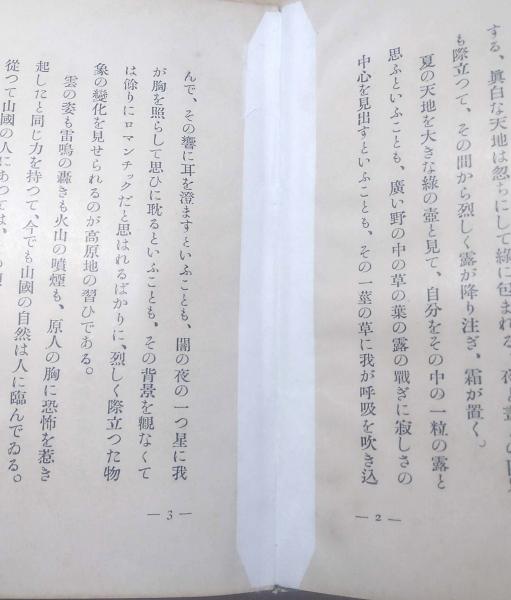 する、眞白な天地は忽ちにして緑に包まれる。夜と
も際立つて、その間から烈しく露が降り注ぎ、霜が置く。
夏の天地を大きな緑の壺と見て、自分をその中の一粒の露と
思ふといふことも、廣い野の中の草の葉の露の戰ぎに寂しさの
中心を見出すといふことも、その一莖の草に我が呼吸を吹き込
— 2 —
んで、その響に耳を澄ますといふことも、闇の夜の一つ星に我
が胸を照らして思ひに耽るといふことも、その背景を觀なくて
は餘りにロマンチックだと思はれるばかりに、烈しく際立つた物
象の變化を見せられるのが高原地の習ひである。
雲の姿も雷鳴の轟きも火山の噴煙も、原人の胸に恐怖を惹き
起したと同じ力を持つて、今でも山國の自然は人に臨んでゐる。
從つて山國の人にあつては、
— 3 —